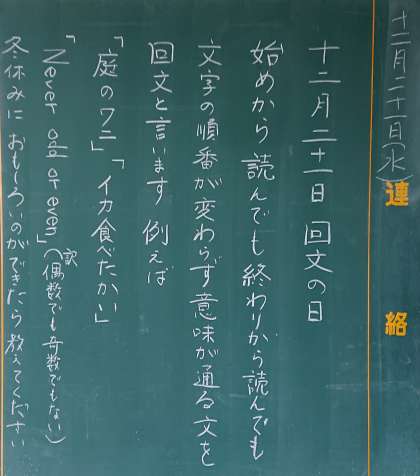 十二月二十一日(水)
連絡
十二月二十一日 回文の日
始めから読んでも終わりから読んでも
文字の順番が変わらず意味が通る文を
回文と言います 例えば
「庭のワニ」「イカ食べたかい」
「Never odd or even」(訳 偶数でも奇数でもない)
冬休みにおもしろいのができたら教えてください